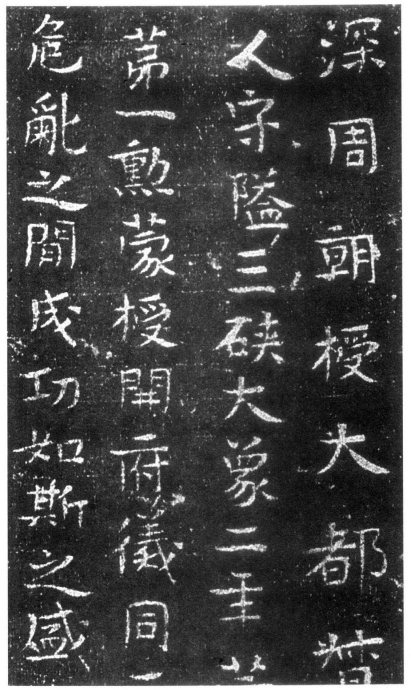 深周朝授大都督
人守隘三硖大象二年
第一勲蒙授開府儀同
危亂之間成功如斯之盛